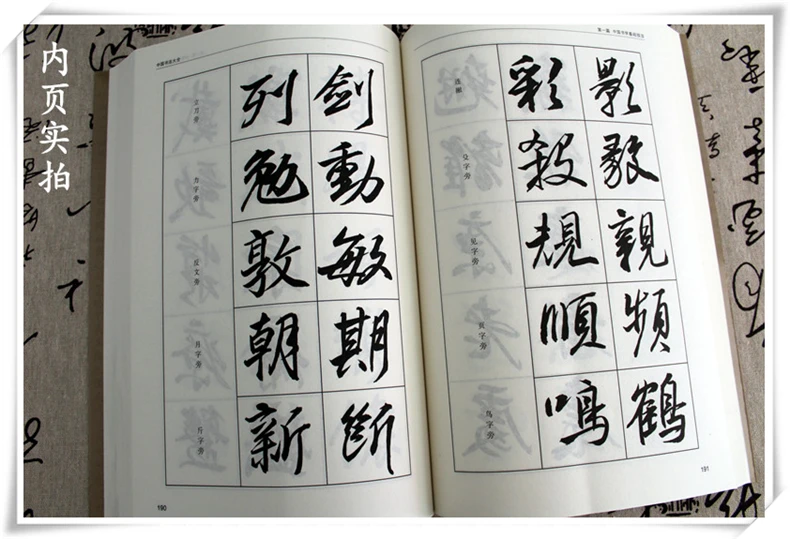 内页实拍
立刀旁
列 剑
力字旁
勉 動
反文旁
敦 敏
月字旁
朝 期
斤字旁
新 断
190
彩 影
殳字旁
殺 毅
见字旁
規 親
頁字旁
順 頻
鸟字旁
鳴 鶴
191